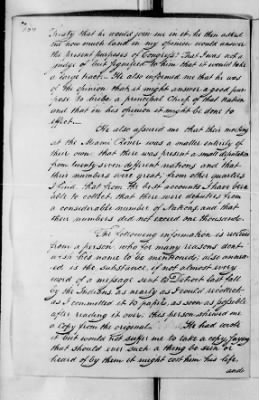 Treaty that he would join me in it. he then asked
me how much land in my opinion would answer
the present purposes of Congress? That I was not a
judge of but signified to him that it would take
a large tract. He also informed me that he was
of the opinion that it might answer a good pur-
pose to bribe a principal Chief of that nation
and that in his opinion it might be done to
effect.
He also assured me that their meeting
at the Miami River was a matter entirely of
their own that there was present a deputation
from twenty seven different nations and that
their numbers were great; from other quarters
I find that from the best accounts I have been
able to collect that there were deputies from
a considerable number of Nations, and that
their numbers did not exceed one thousand.
The following information is received
from a person who for many reasons dont
wish his name to be mentioned; also annex-
ed is the substance, if not almost every
word of a message sent to Detroit last fall
by the Indians as nearly as I could recollect
as I committed it to paper, as soon as possible
after reading it over this person shewed me
a Copy from the original. He had wrote
it but would not suffer me to take a copy, saying
that should ever such a thing be seen or
heard of by them it might cost him his life
and